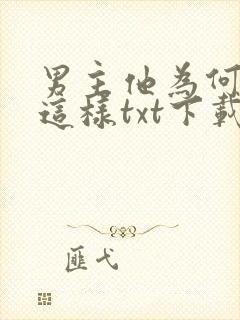 男主他為何
這樣txt下載
匪弋